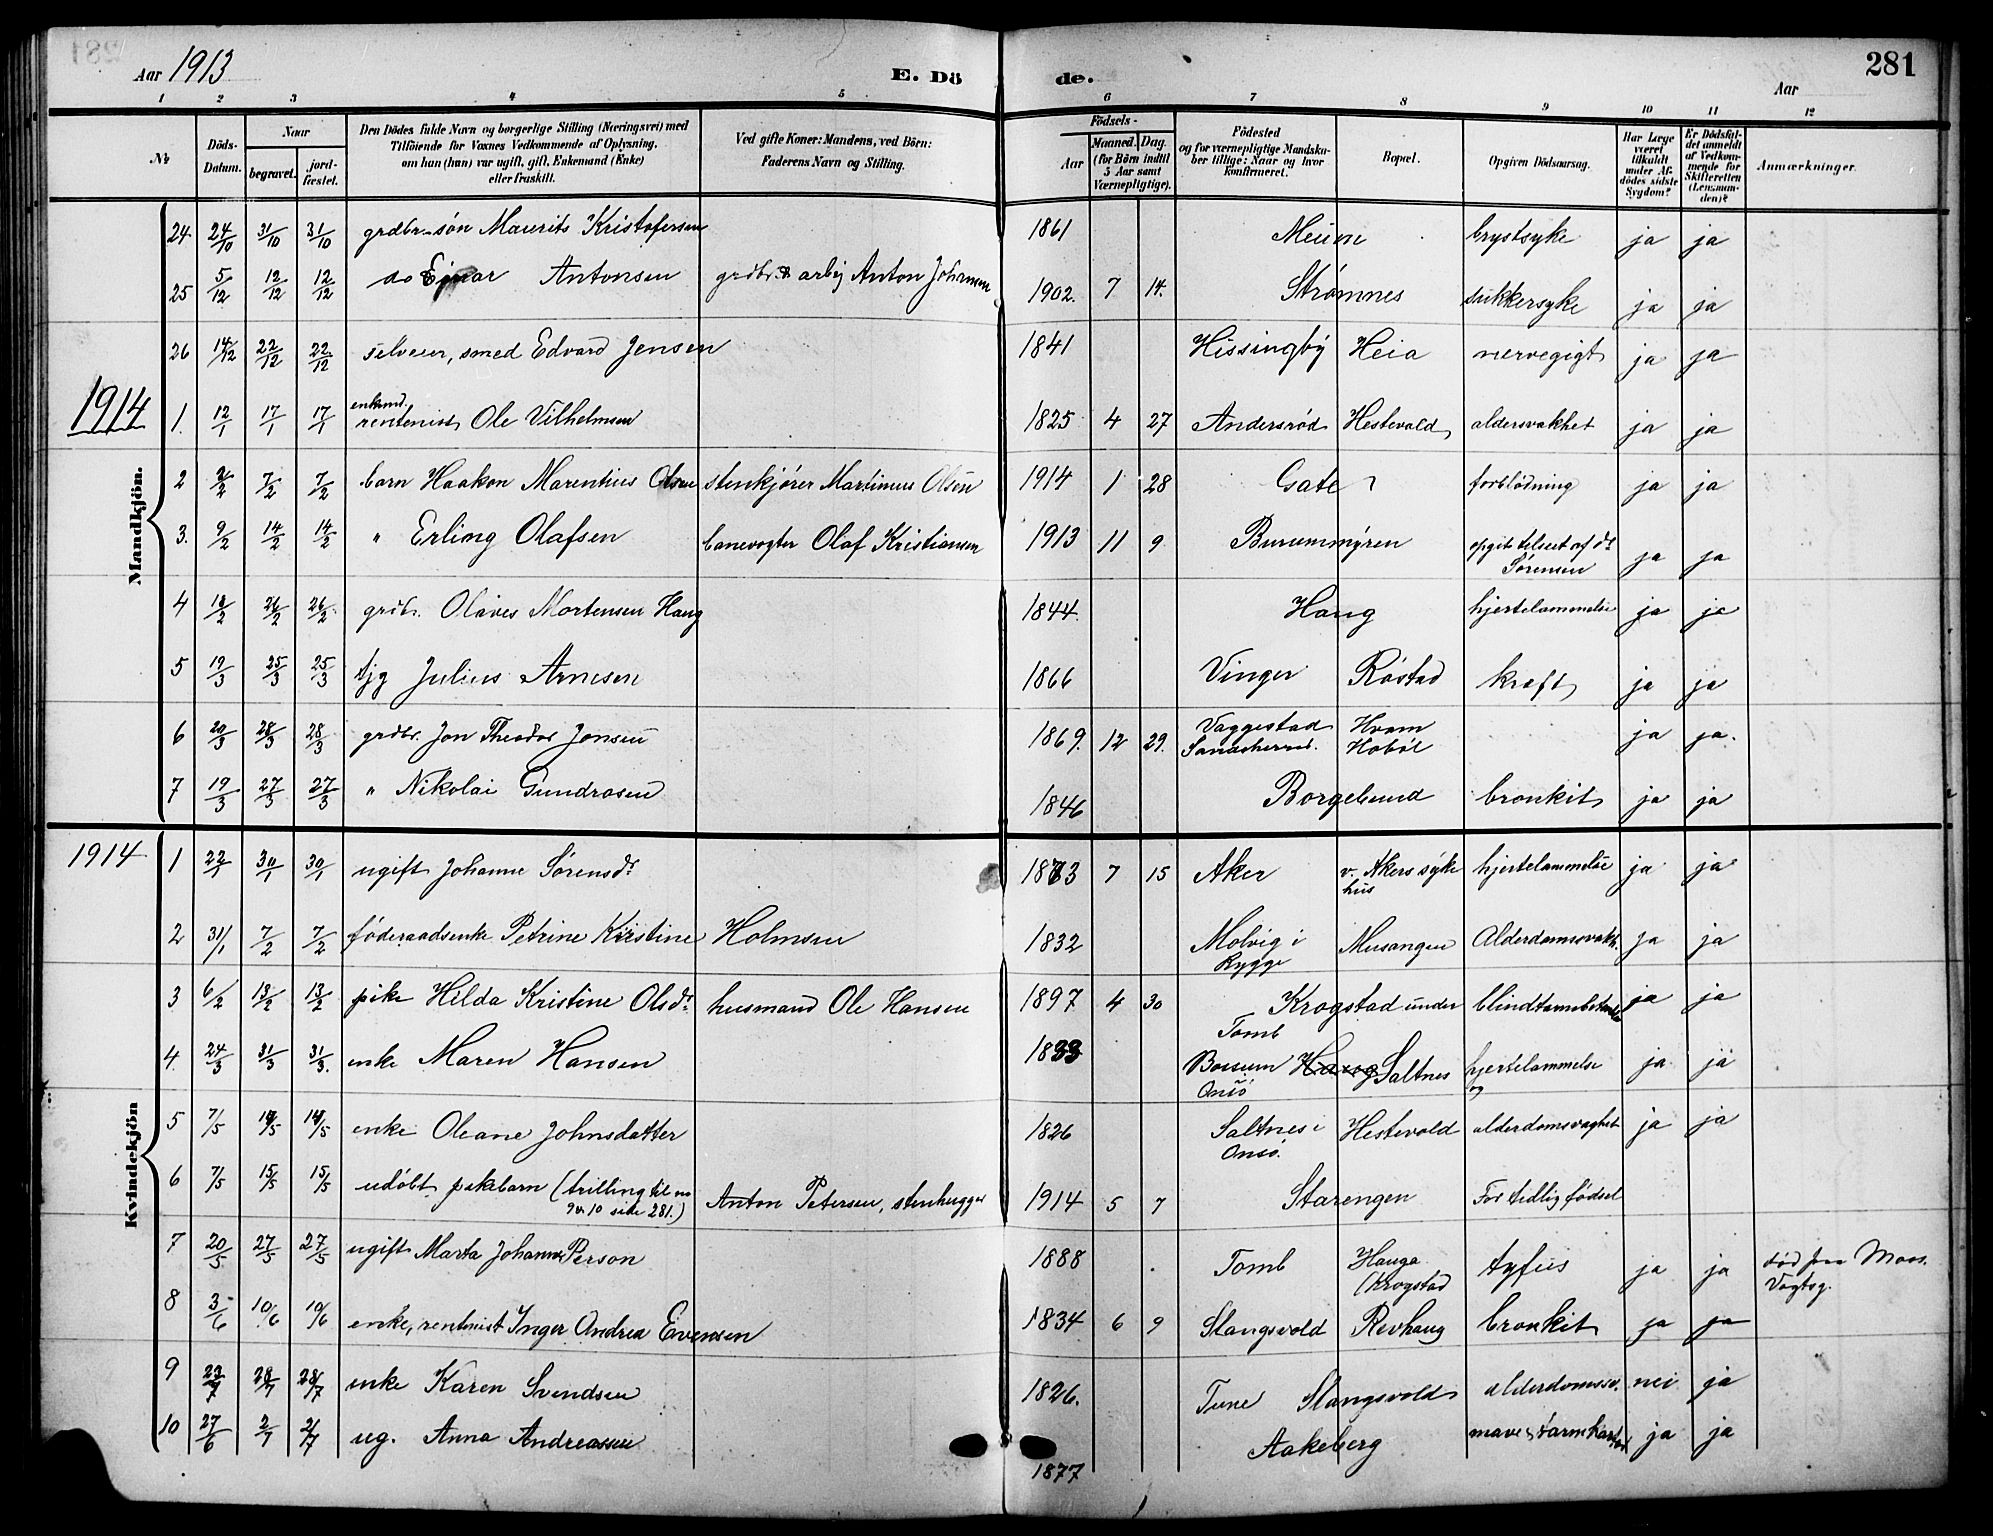 Aar 1913 E. Döde. Aar 281
1 2 3 4 5 6 7 8 9 10 11 12
№ Döds-Datum. Naar begravet. jordfæstet. Den Dödes fulde Navn og borgerlige Stilling (Næringsvei) med Tilföiende for Voxnes Vedkommende af Oplysning, om han (hun) var ugift, gift, Enkemand (Enke) eller fraskilt. Ved gifte Koner: Mandens, ved Börn: Faderens Navn og Stilling. Födsels- Aar Maaned. Dag. (for Börn indtil 5 Aar samt Værnepligtige). Födested og for værnepligtige Mandskaber tillige: Naar og hvor konfirmeret. Bopæl. Opgiven Dödsaarsag. Har Læge været tilkaldt under Afdödes sidste Sygdom? Er Dödsfaldet anmeldt af Vedkommende for Skifteretten (Lensmanden)? Anmærkninger.
Mandkjön.
24 24/10 31/10 31/10 grdbr.søn Maurits Kristofersen 1861 brystsyke ja ja
25 5/12 12/12 12/12 do Ejnar Antonsen grdbr. & arbj Anton Johansen 1902. 7 14. Strømnes sukkersyke ja ja
26 14/12 22/12 22/12 selveier, smed Edvard Jensen 1841 Hissingby Heia nervegigt ja ja
1914
1. 12/1 17/1 17/1 enkmd. rentenist Ole Vilhelmsen 1825 4 27 Andersrød Hestevold aldersvakhet ja ja
2 2/2 7/2 7/2 barn Haakon Marentius Olsen stenkjører Martinius Olsen 1914 1 28 Gate forblødning ja ja
3. 9/2 14/2 14/2 " Erling Olafsen banevogter Olaf Kristiansen 1913 11 9 Burummyren Sørensen ja ja
4 18/2 26/2 26/2 grdbr. Olaves Mortensen Haug 1844. Haug hjertelammelse ja ja
5 19/3 25/3 25/3 tjg Julius Arnesen 1866 Vinger Røstad kreft ja ja
6 20/3 28/3 28/3 grdbr. Jon Theodor Jonsen 1869. 12 29. Vaggestad Hvam Hobøl ja ja.
7 19/3 27/3 27/3 " Nikolai Gundrosen 1846 Borgelund bronkit ja ja
Kvindekjön
1914
1 22/1 30/1 30/1 ugift Johanne Sørensdr. 1873 7 15 Aker v. Akers sykehus hjertelammelse ja ja
2 31/1 7/2 7/2 føderaadsenke Petrine Kirstine Holmsen 1832 Molvig i Rygge Musangen Alderdomsvakh. ja ja
3 6/2 13/2 13/2 pike Hilda Kristine Olsdr. husmand Ole Hansen 1897 4 30 Krogstad under Tomb ja ja
4. 24/3 31/3 31/3. enke Maren Hansen 1833 Bossum Onsö Haug Saltnes hjertelammelse og ja ja
5 7/5 14/5 14/5 enke Oleane Johnsdatter 1826 Saltnes i Onsö. Hestevold alderdomsvaghet ja ja
6 7/5 15/5 15/5 udøbt pikebarn (trilling til no 9 & 10 side 281.) Anton Petersen, stenhugger 1914 5 7 Starengen For tidlig fødsel
7 20/5 27/5 27/5 ugift Marta Johanne Person 1888 Tomb Hauga (Krogstad tyfus ja ja død paa Moss. Vagtsg.
8 3/6 10/6 10/6 enke, rentenist Inger Andrea Evensen 1834 6 9 Slangsvold Revhaug bronkit ja ja
9 23/7 28/7 28/7 enke Karen Svendsen 1826. Tune Slangsvold alderdomssv. nei ja
10 27/6 2/7 2/7 ug. Anna Andreassen 1877 Aakeberg ja ja